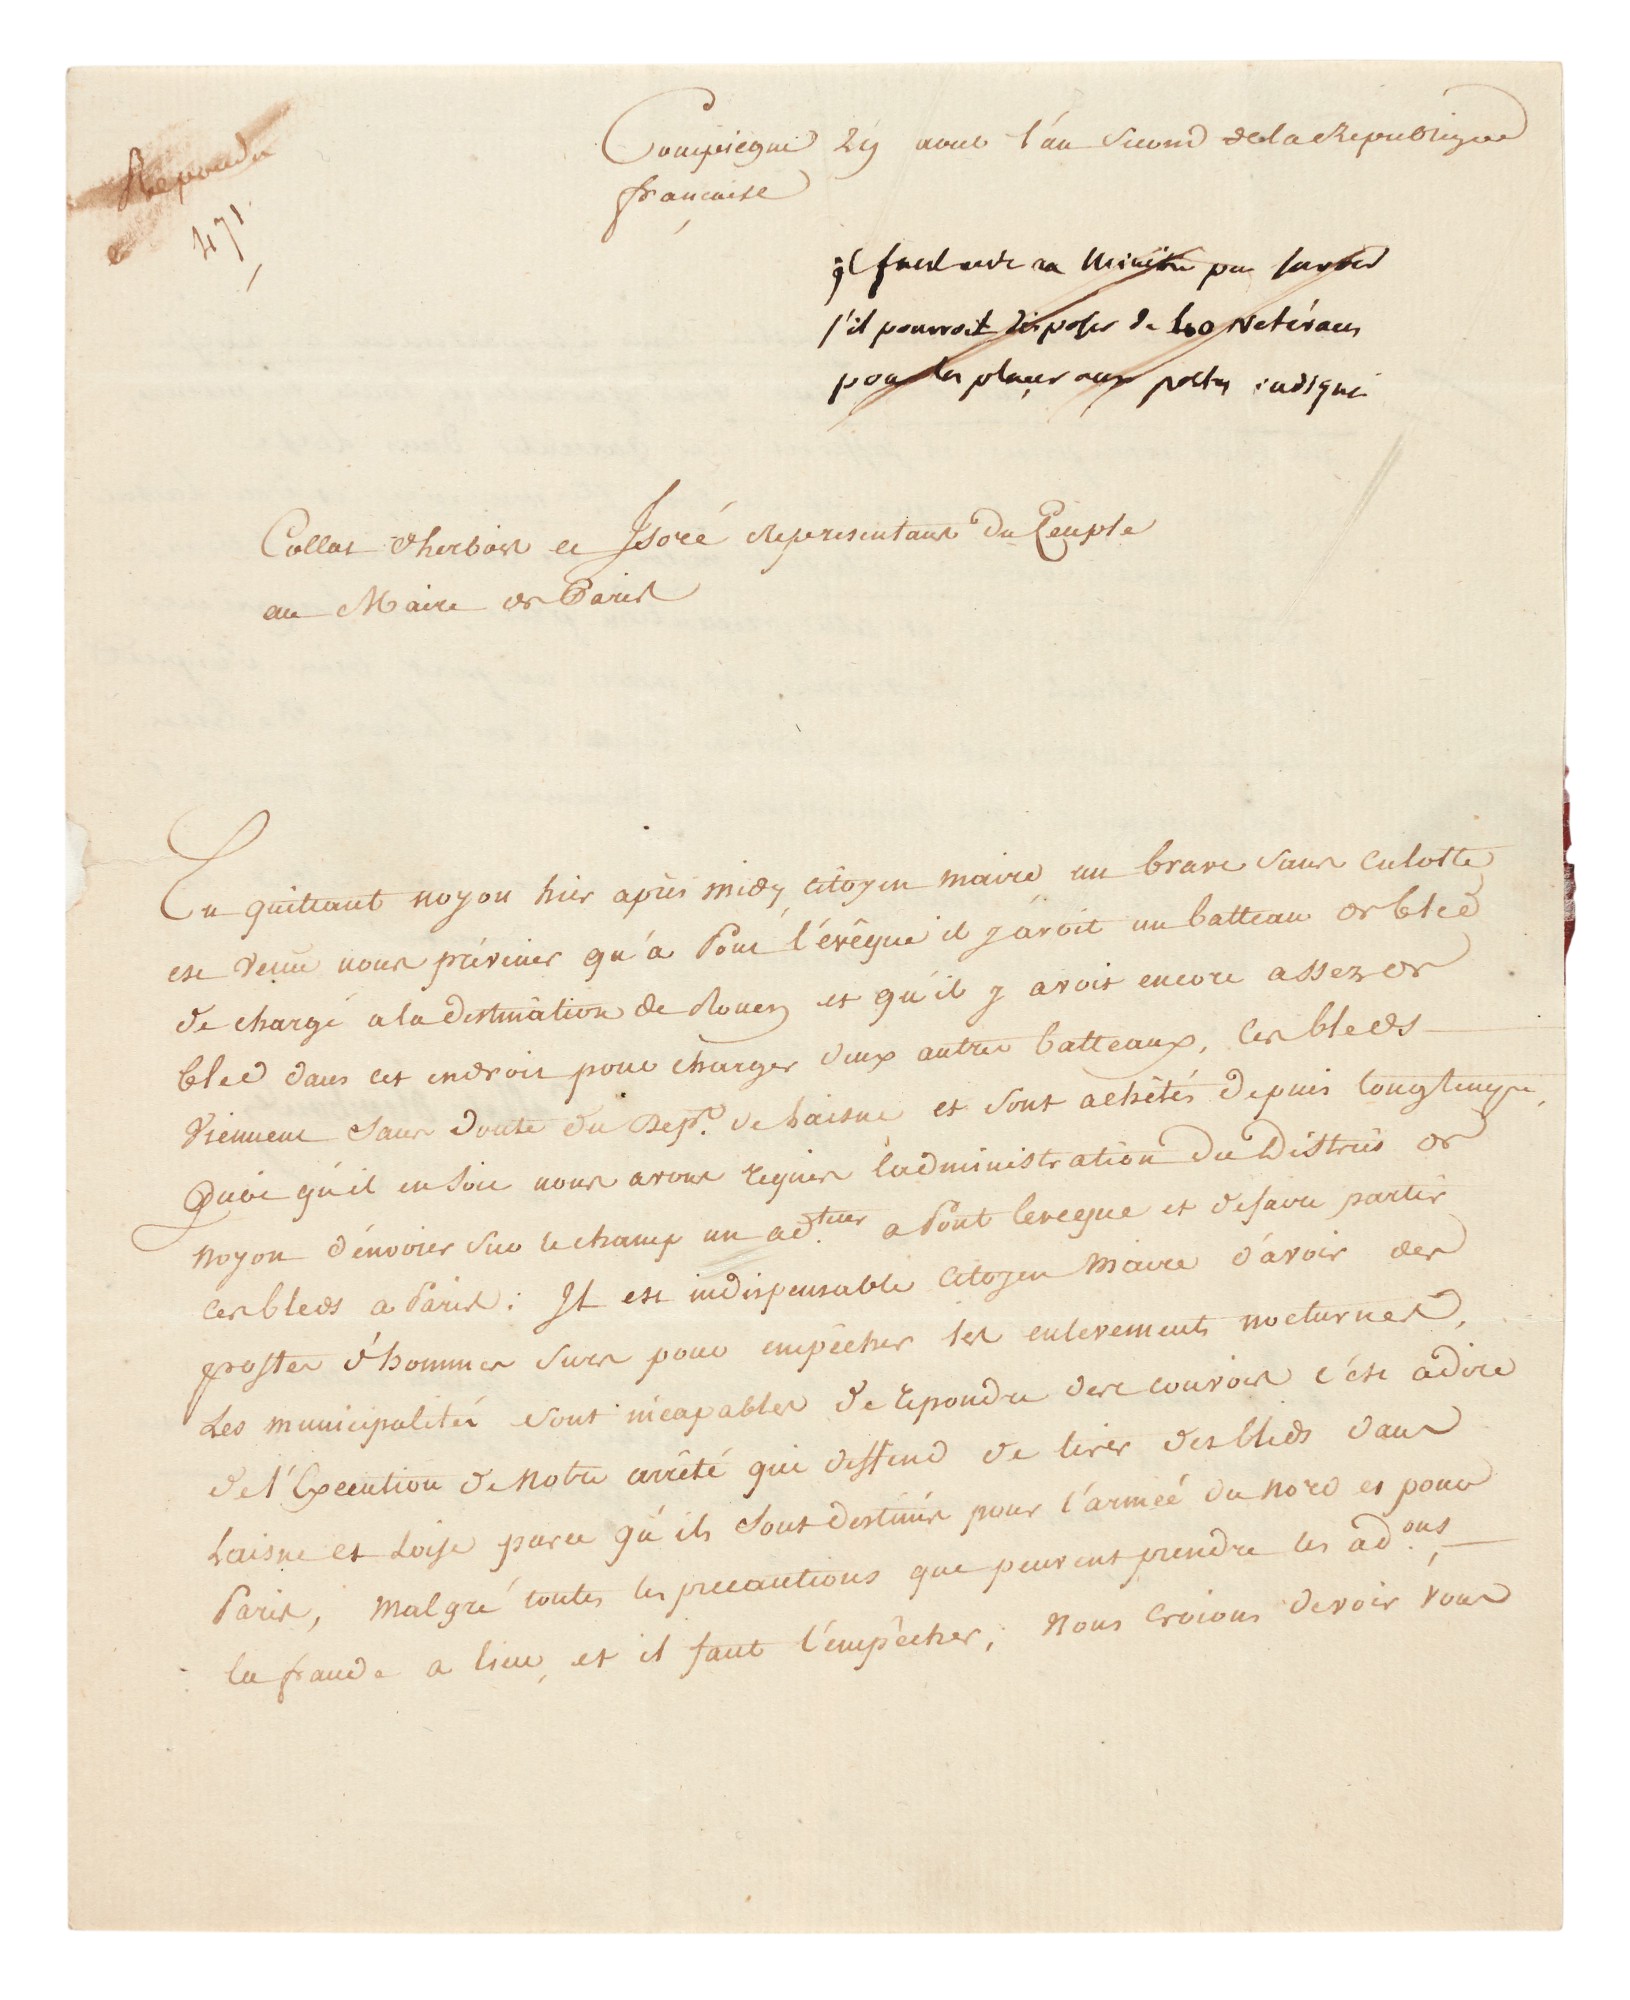 Repondu
471
Compiegne 29 aout l'an second de la Republique
francaise
il faut ecrire au Ministre pour savoir
s'il pourroit disposer de 40 veterans
pour les placer aux postes indiqué
Collot dherbois et Isoré Representans du Peuple
au Maire de Paris
En quittant noyon hier après midy, citoyen maire, un brave sans culotte
est venu nous prévenir qu'a Pont l'évêque il y avoit un batteau de bled
de chargé a la destination de Rouen et qu'il y avoit encore assez de
bled dans cet endroit pour charger deux autres batteaux, ces bleds
viennent sans doute du Dep.t de laisne et sont achêtés depuis longtemps,
Quoi qu'il en soit nous avons requis l'administration du District de
Noyon d'envoier sur le champ un ad.teur a Pont leveque et de faire partir
ces bleds a Paris; Il est indispensable citoyen Maire d'avoir des
postes d'hommes surs pour empêcher les enlevements nocturnes,
Les municipalités sont incapables de repondre de ce convois c'est adire
de l'Execution de Notre arrêté qui deffend de tirer des bleds dans
Laisne et Loise parce qu'ils sont destinés pour l'armée du Nord et pour
Paris, Malgré toutes les precautions que peuvent prendre les ad.ons
la fraude a lieu, et il faut l'empêcher; Nous croions devoir vous